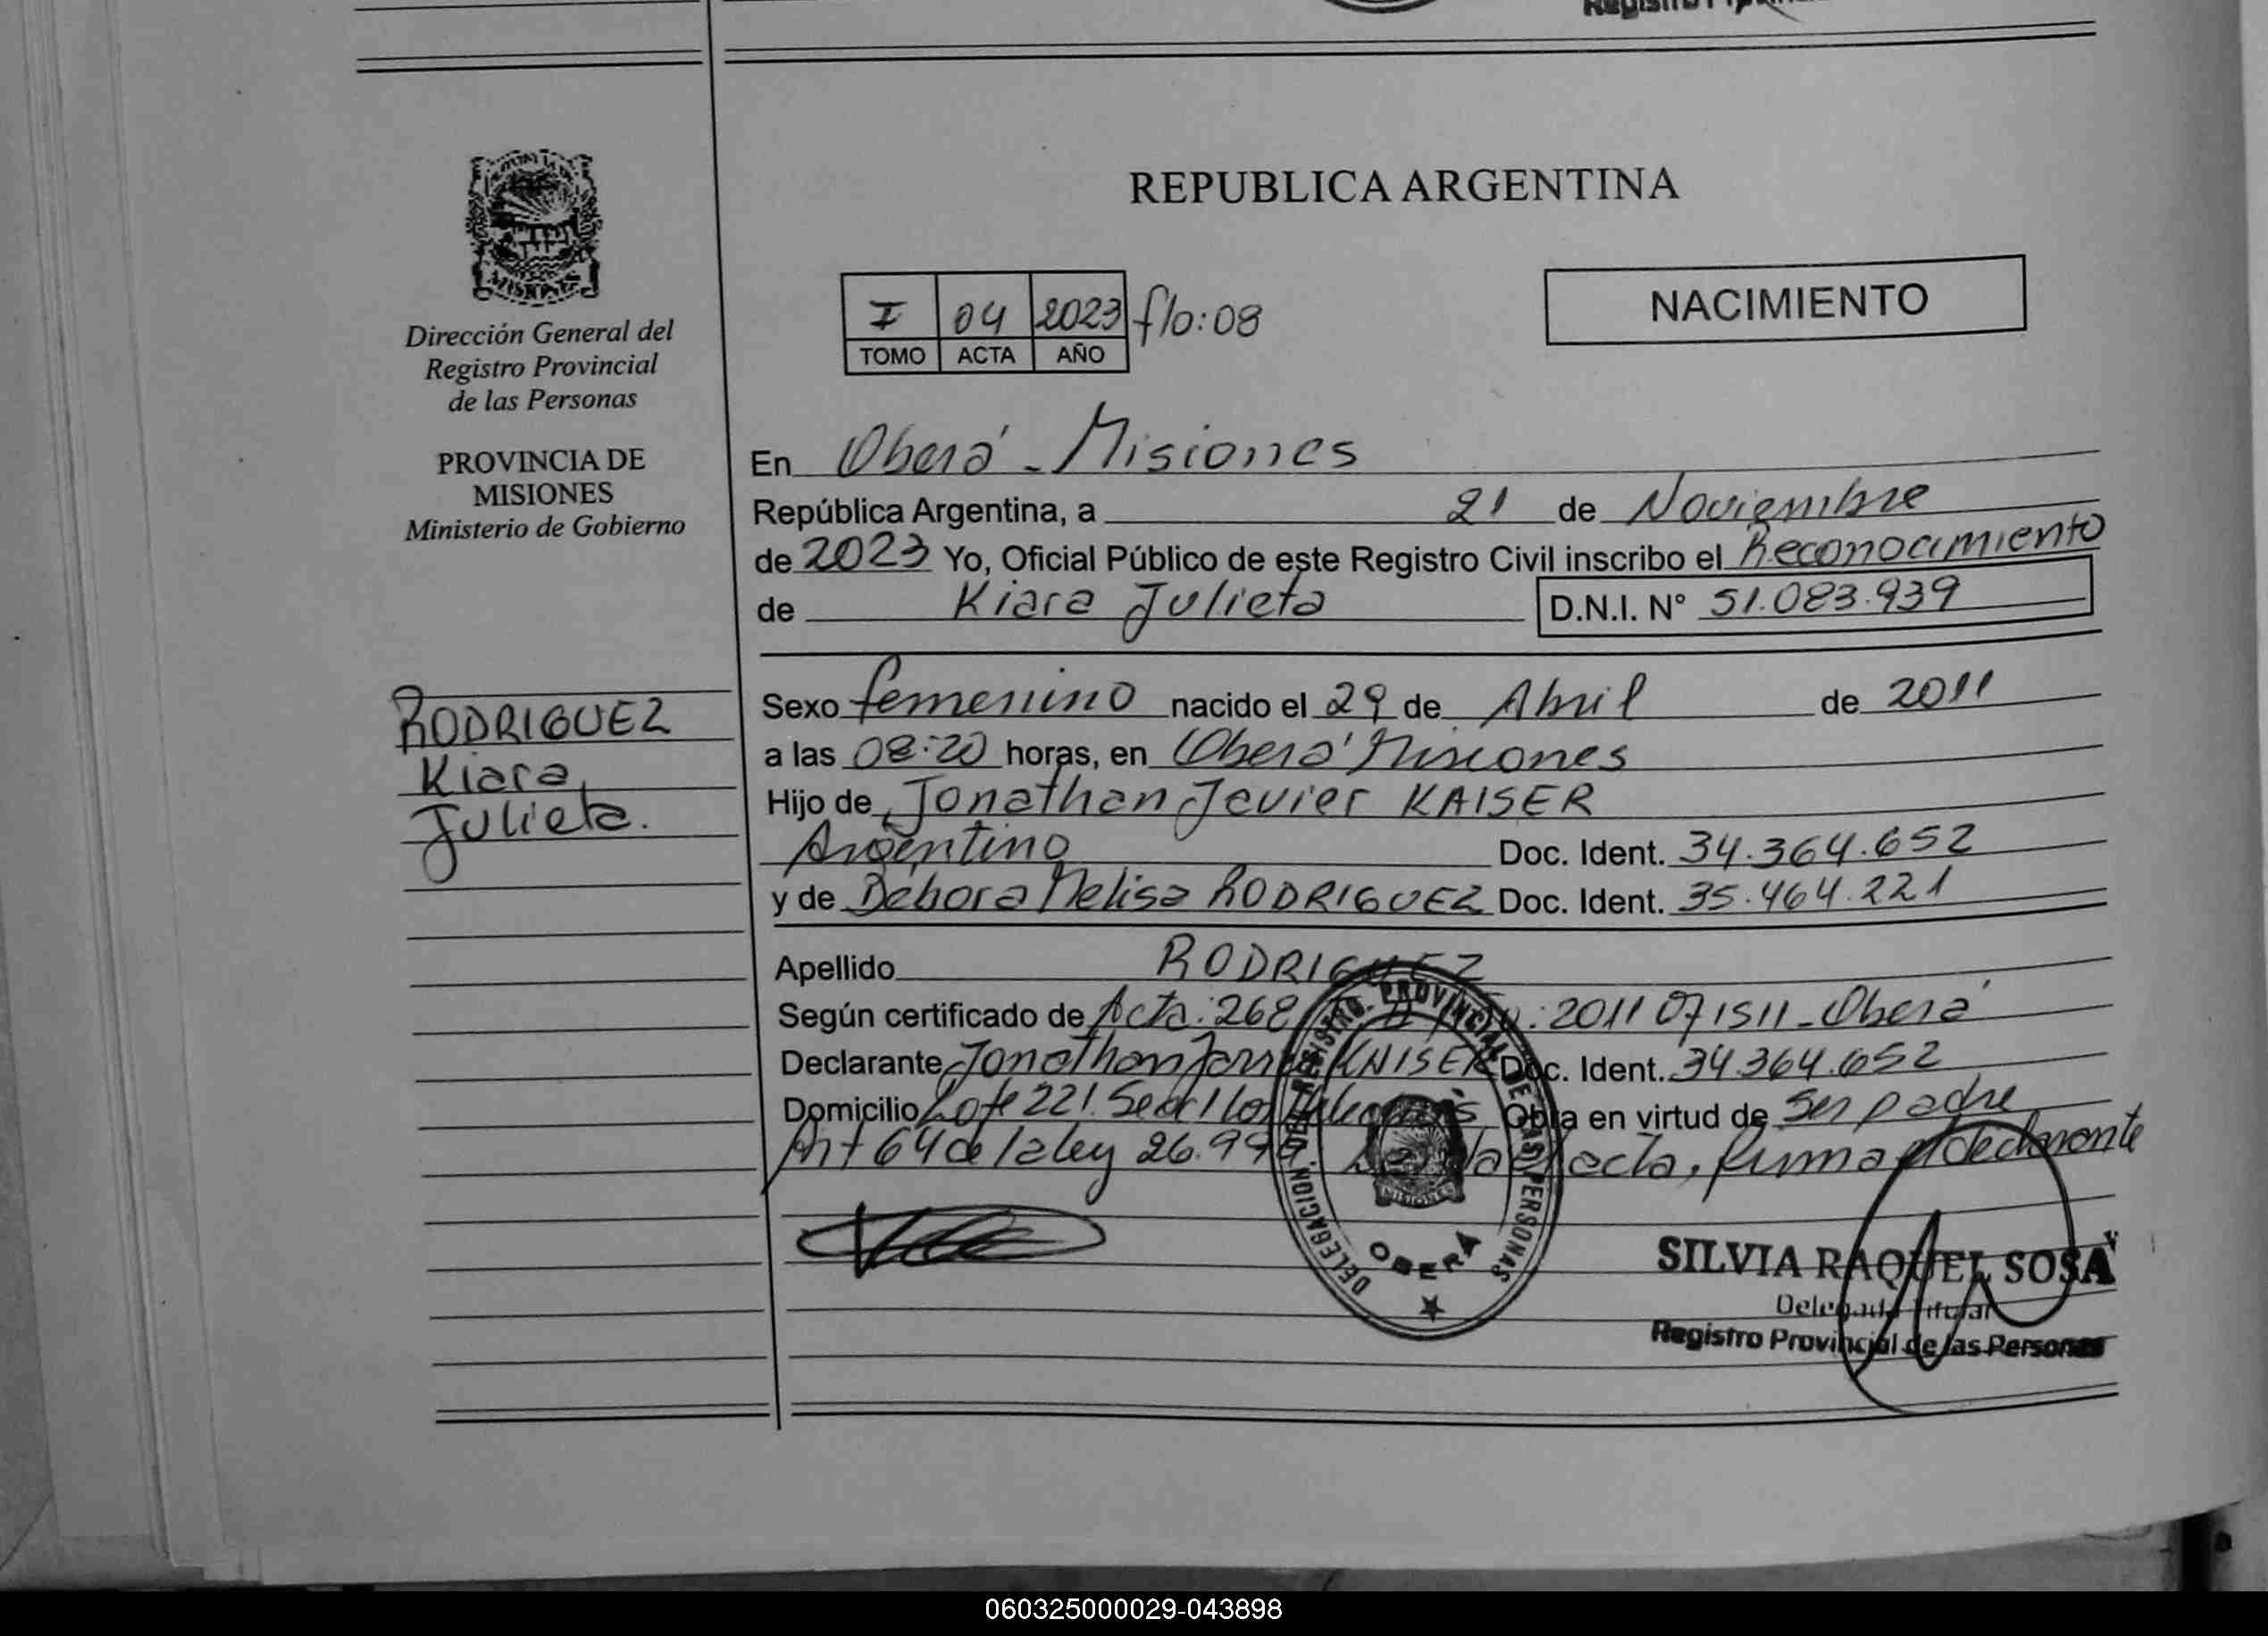 Registro Provincial
REPUBLICA ARGENTINA
NACIMIENTO
I 04 2023 flo:08
TOMO ACTA AÑO
Dirección General del
Registro Provincial
de las Personas
PROVINCIA DE
MISIONES
Ministerio de Gobierno
RODRIGUEZ
Kiara
Julieta.
En Oberá - Misiones
República Argentina, a 21 de Noviembre
de 2023 Yo, Oficial Público de este Registro Civil inscribo el Reconocimiento
de Kiara Julieta D.N.I. N° 51.083.939
Sexo femenino nacido el 29 de Abril de 2011
a las 08:20 horas, en Oberá Misiones
Hijo de Jonathan Javier KAISER
Argentino Doc. Ident. 34.364.652
y de Débora Melisa RODRIGUEZ Doc. Ident. 35.464.221
Apellido RODRIGUEZ
Según certificado de Acta: 268 2011 Oberá
Declarante Jonathan Javier KAISER Doc. Ident. 34.364.652
Domicilio Lote 221. Obra en virtud de ser padre
Art 64 de la ley 26.994. acta, firma el declarante
DELEGACION DEL REGISTRO PROVINCIAL DE LAS PERSONAS
MISIONES
OBERA
SILVIA RAQUEL SOSA
Delegada Titular
Registro Provincial de las Personas
060325000029-043898